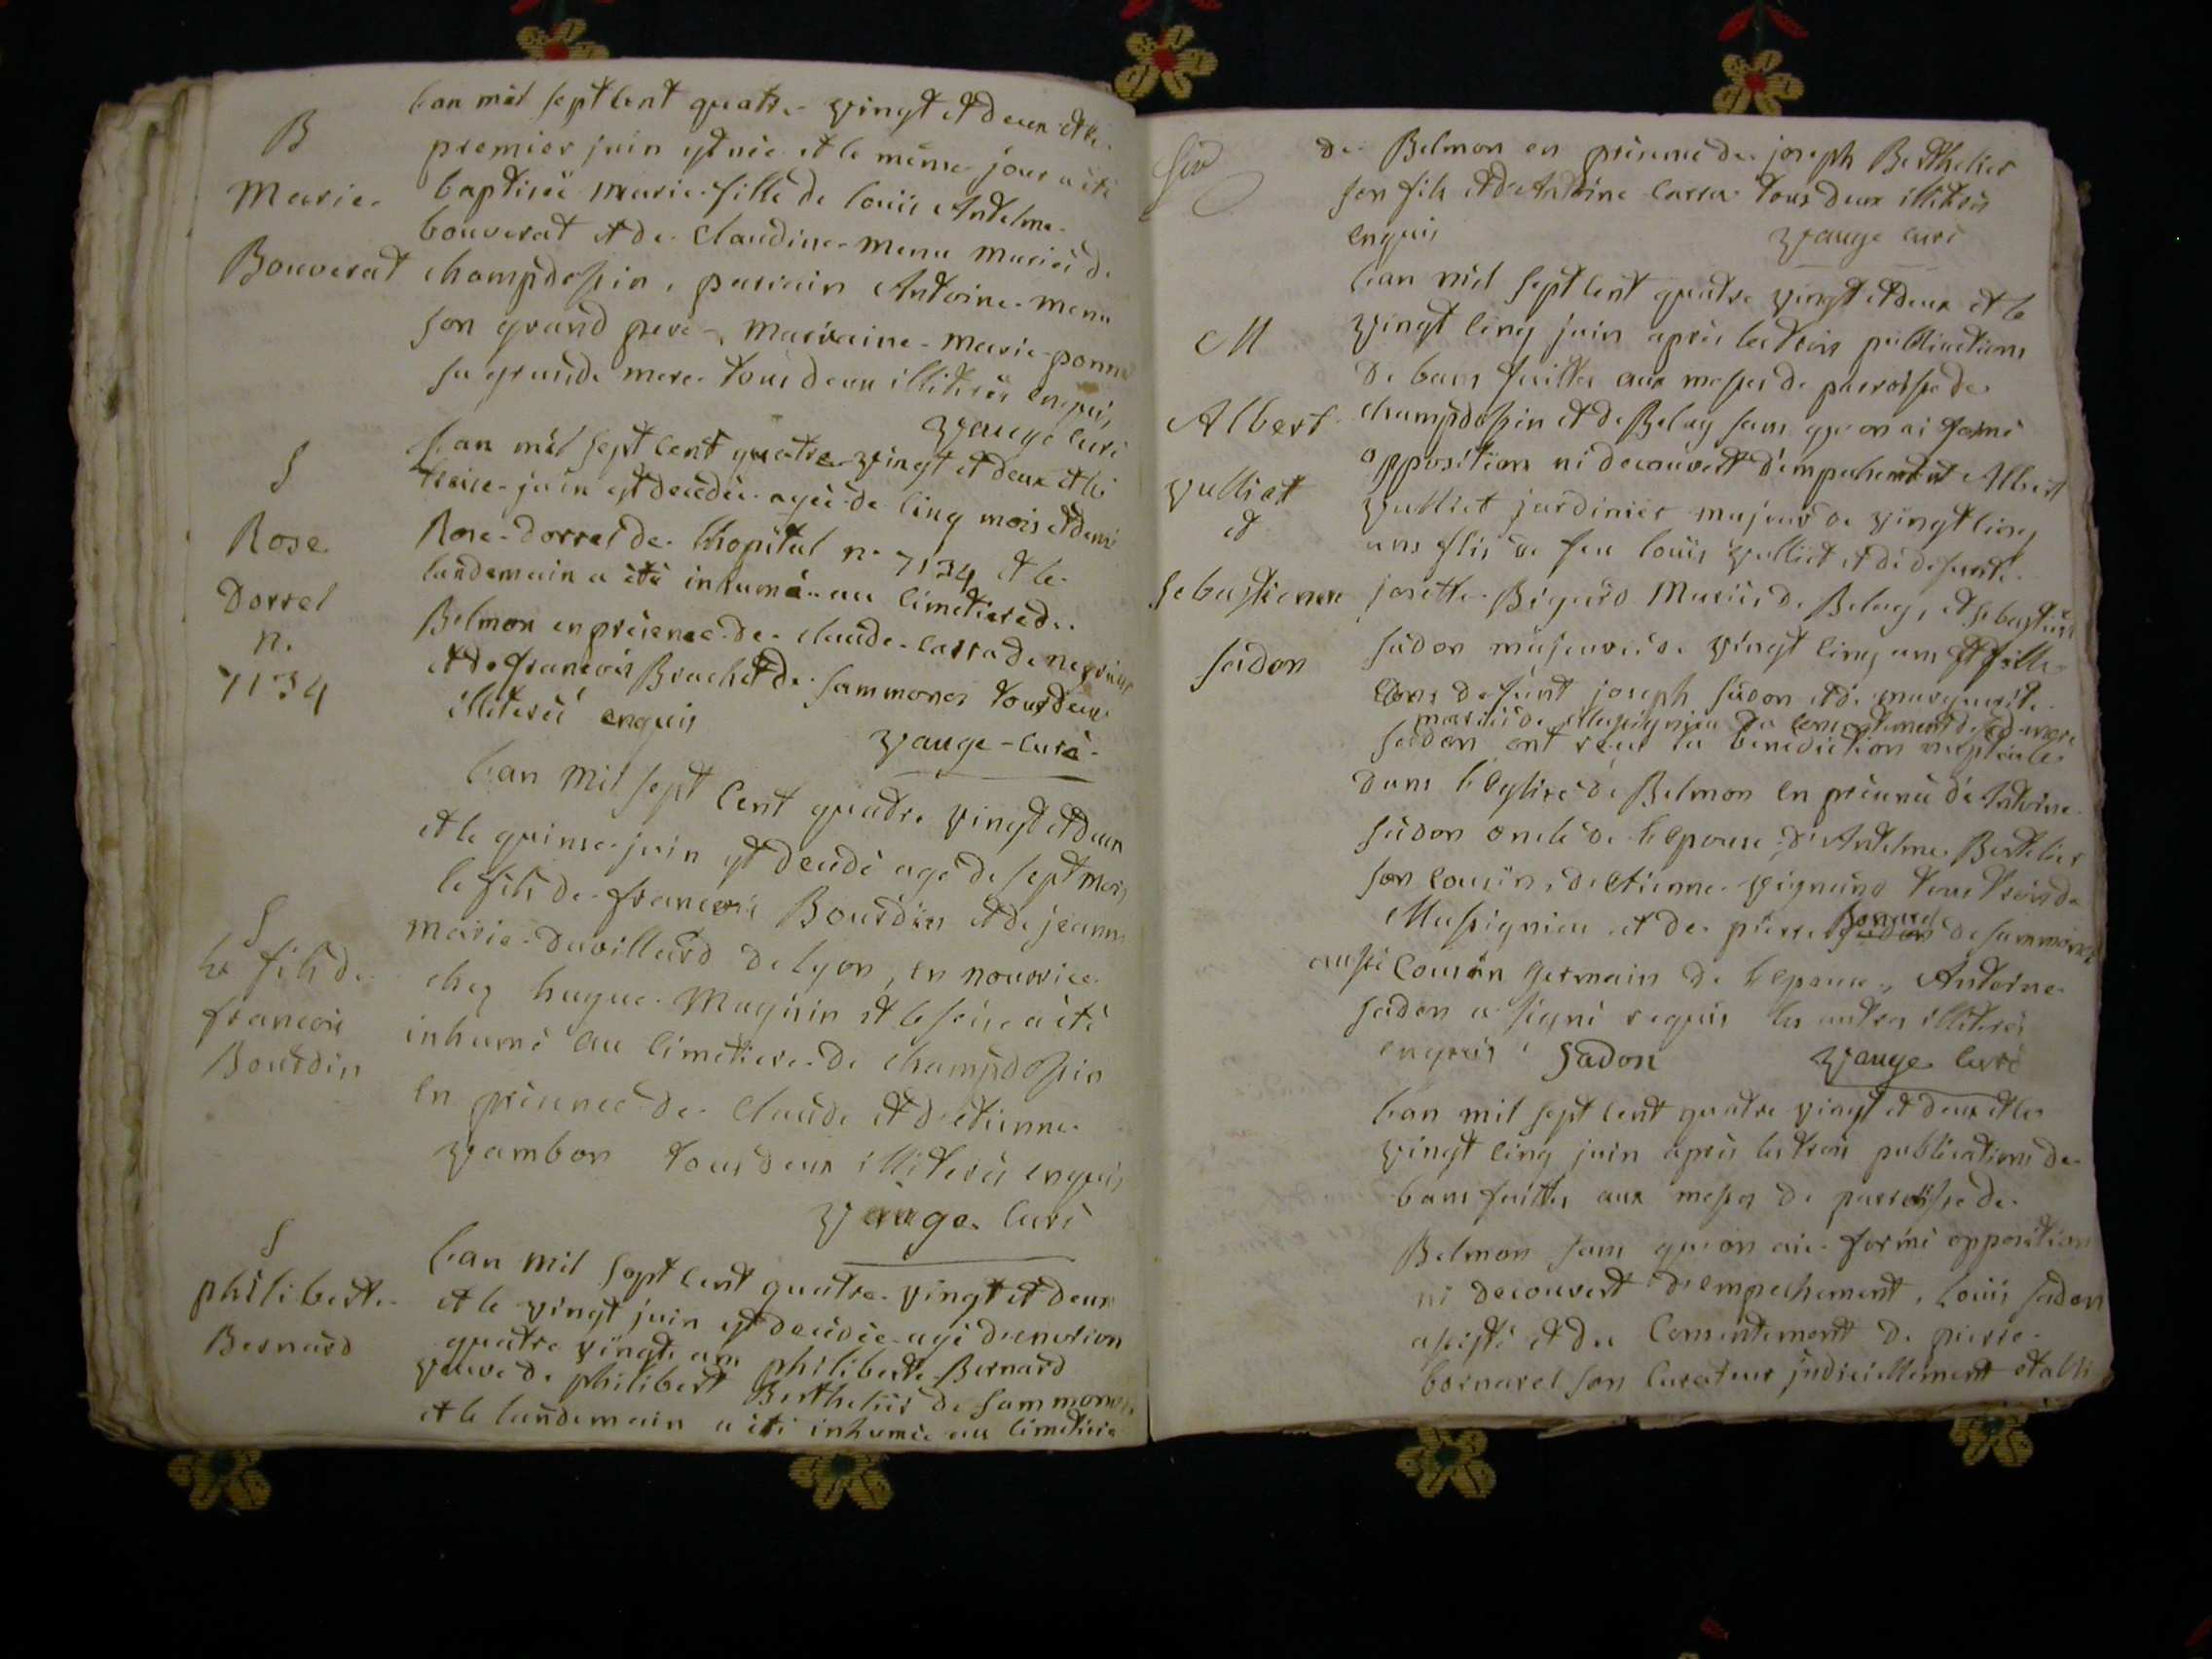 B
Marie
Bouverat
l'an mil sept cent quatre vingt et deux et le
premier juin est née et le même jour a été
baptisée marie fille de louis Antelme
bouverat et de Claudine menu mariés de
champdossin, pariain Antoine menu
son grand pere, marraine marie ponne
sa grande mere tous deux illiterés enquis
vauge curé
S
Rose
Dorrel
n.
7134
l'an mil sept cent quatre vingt et deux et le
treise juin est decedée agée de cinq mois et demi
Rose dorrel de lhopital n. 7134 et le
landemain a été inhumé au cimetiere de
Belmon en presence de claude carra de
et de francois Brachet de sammonos tous deux
illiterés enquis
vauge curé
l'an mil sept cent quatre vingt et deux
et le quinse juin est decedé agé de sept mois
S
le fils de
francois
Bourdin
le fils de francois Bourdin et de jeanne
marie duvillard de lyon, en nourrice
chez hugue Magnin et le seise a été
inhumé au cimetiere de champdossin
en presence de Claude et d'etienne
vambon tous deux illiterés enquis
vauge curé
S
philiberte
Bernard
l'an mil sept cent quatre vingt et deux
et le vingt juin est decedée agé d'environ
quatre vingts ans philiberte Bernard
veuve de philibert Berthelier de sammonos
et le landemain a été inhumée au cimetiere
six
de Belmon en presence de joseph Berthelier
son fils et de Antoine carra tous deux illiterés
enquis vauge curé
M
Albert
vulliet
et
Sebastienne
sadon
l'an mil sept cent quatre vingt et deux et le
vingt cinq juin après les trois publications
de bans faittes aux messes de parroisse de
champdossin et de Belay sans que on ai formé
opposition ni decouvert d'empechement Albert
vulliet jardinier majeur de vingt cinq
ans fils de feu louis vulliet et de defunte
josette Bigard Mariés de Belay, et sebastienne
sadon majeure de vingt cinq ans et fille
de defunt joseph sadon et de marguerite
mariés de Massignieu du consentement de sad mere
sadon ont reçu la benediction nuptiale
dans l'Eglise de Belmon en presence d'Antoine
sadon oncle de l'epouse, d'Antelme Bertelier
son cousin, de etienne vignand tous trois de
Massignieu et de pierre sadon bonard de sammonos
aussi cousin germain de l'epouse, Antoine
sadon a signé requis les autres illiterés
enquis Sadon vauge curé
l'an mil sept cent quatre vingt et deux et le
vingt cinq juin après les trois publications de
bans faittes aux messes de parroisse de
Belmon sans que on aie formé opposition
ni decouvert d'empechement, louis sadon
assisté et du Consentement de pierre
bornarel son Curateur judiciellement etabli